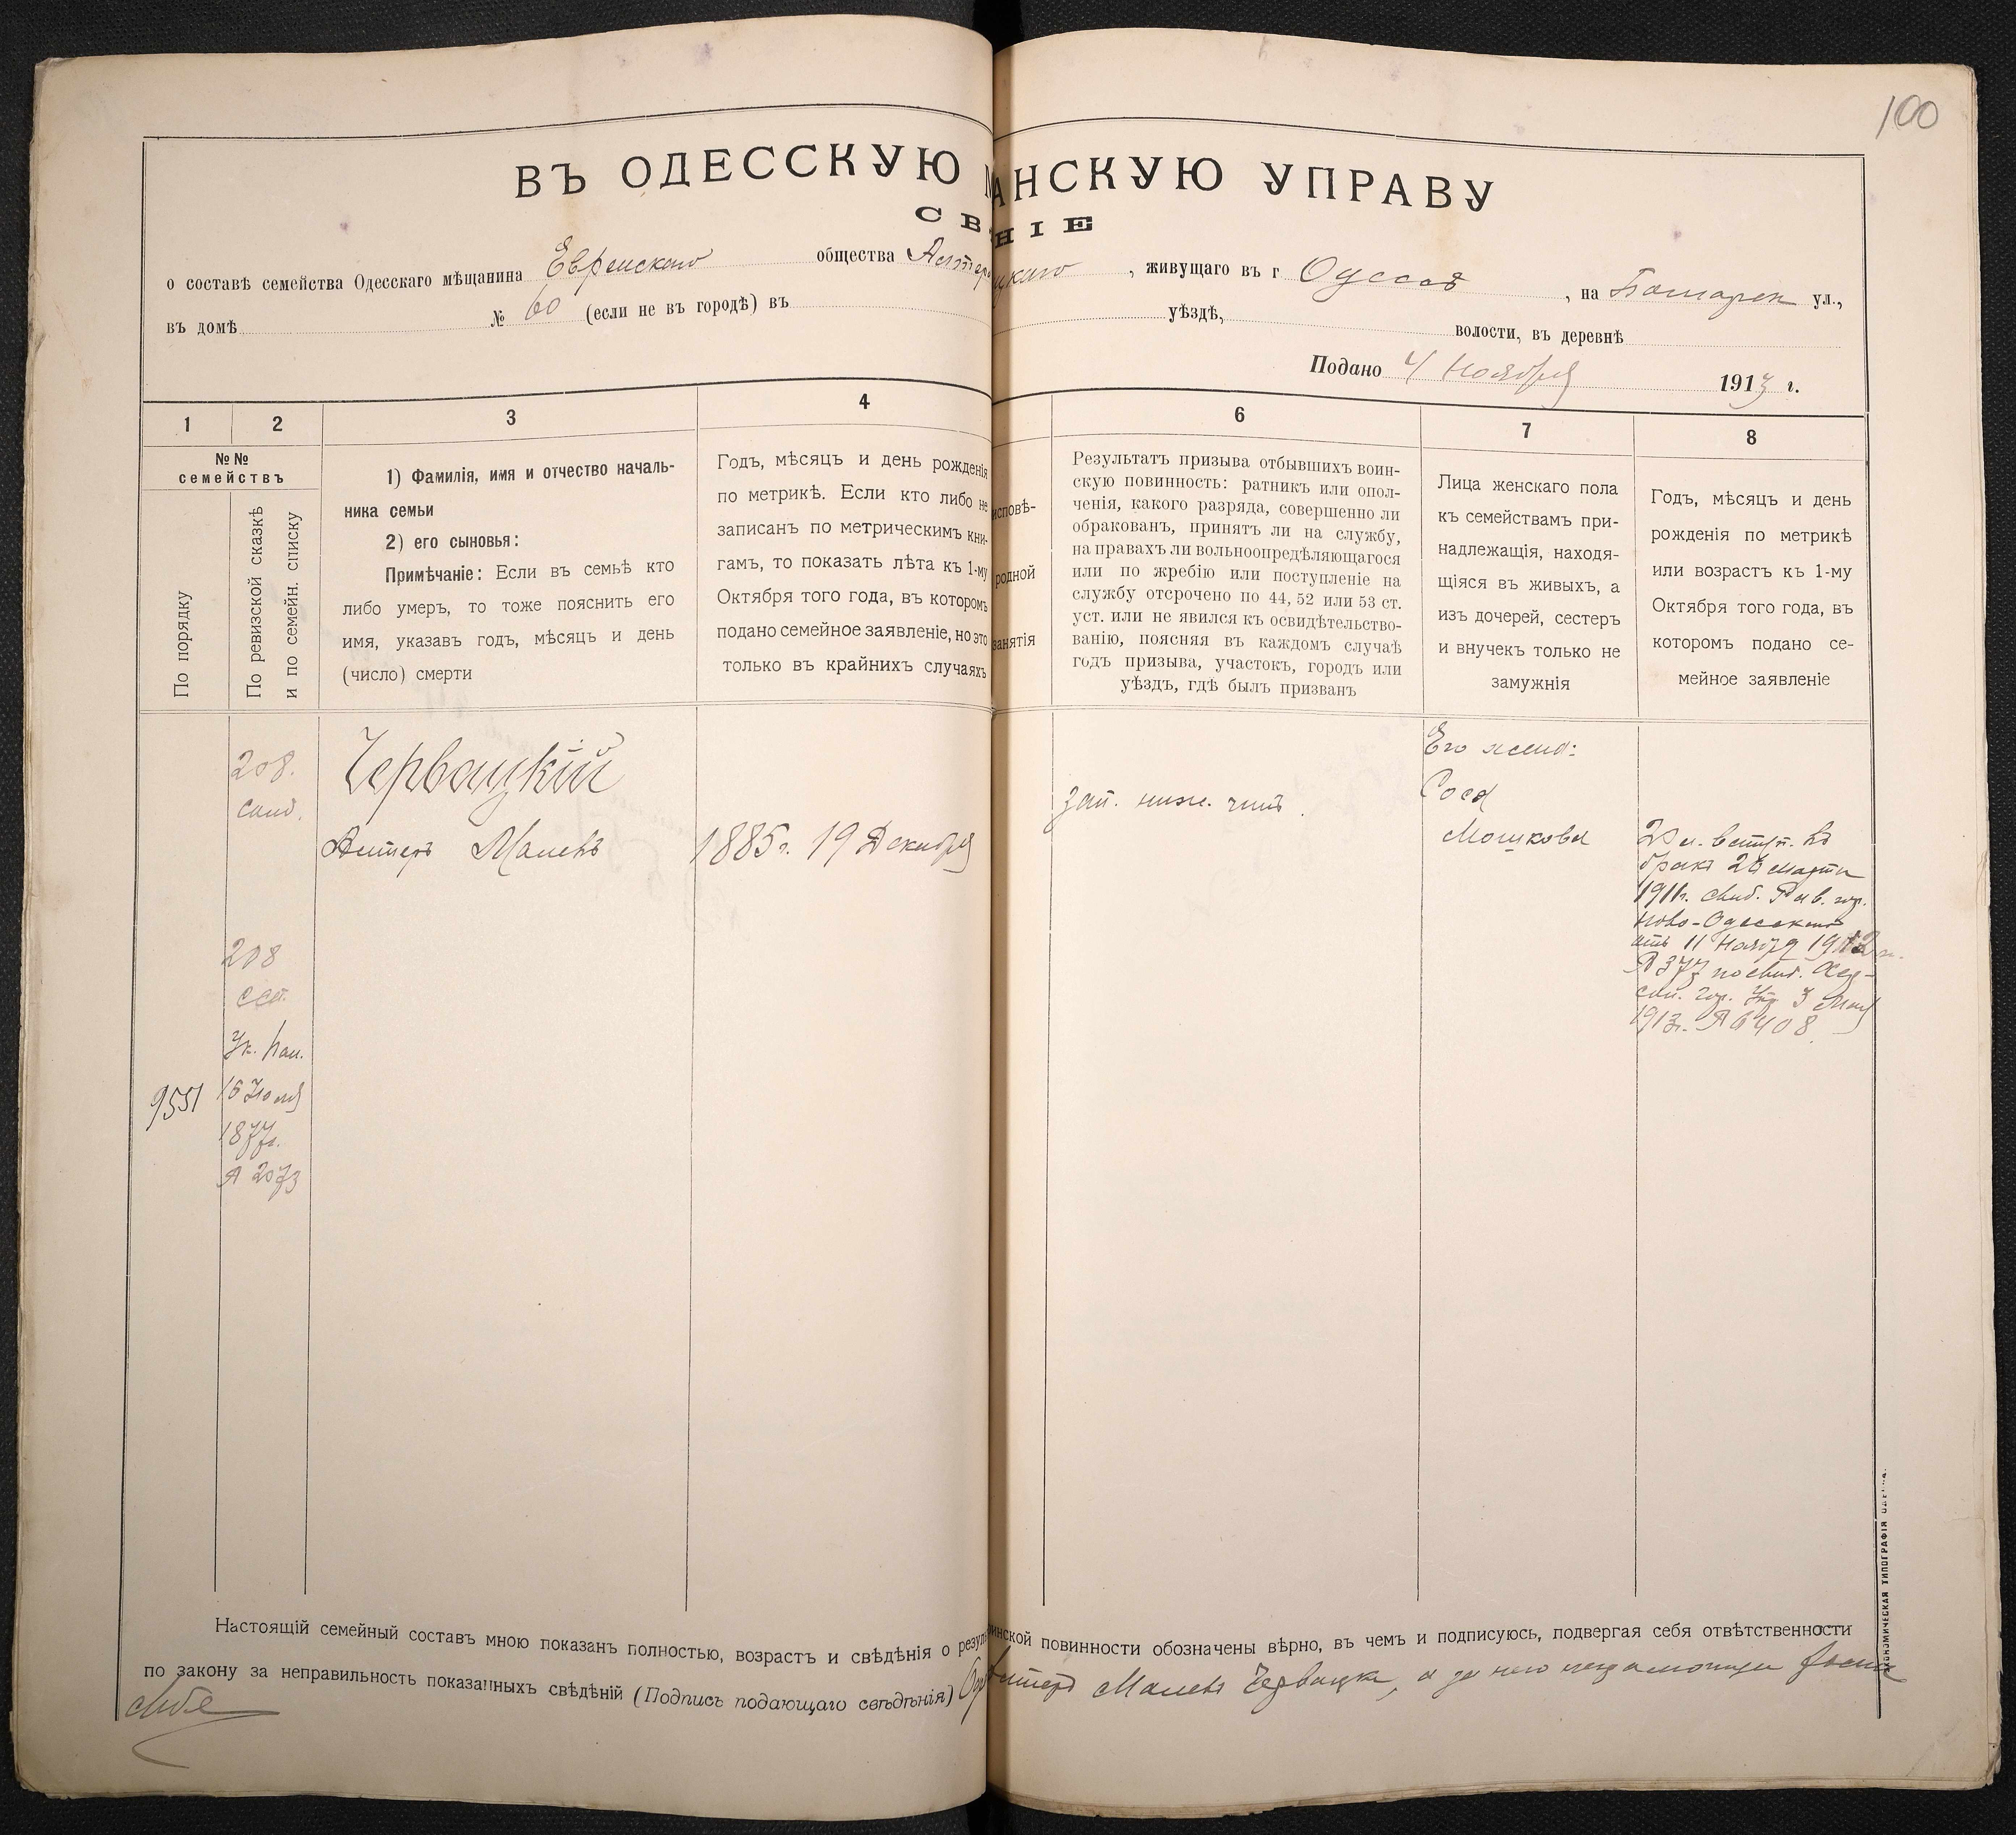 100
ВЪ ОДЕССКУЮ АНСКУЮ УПРАВУ
СВ НІЕ
о составѣ семейства Одесскаго мѣщанина Еврейскаго общества цкаго, живущаго въ г Одессѣ, на ул.,
въ домѣ № 60 (если не въ городѣ) въ уѣздѣ, волости, въ деревнѣ
Подано 4 Ноября 1913 г.
1
2
3
4
6
7
8
№№
семействъ
По порядку
По ревизской сказкѣ
и по семейн. списку
1) Фамилія, имя и отчество началь-
ника семьи
2) его сыновья:
Примѣчаніе: Если въ семьѣ кто
либо умеръ, то тоже пояснить его
имя, указавъ годъ, мѣсяцъ и день
(число) смерти
Годъ, мѣсяцъ и день рожденія
по метрикѣ. Если кто либо не
записанъ по метрическимъ кни-
гамъ, то показать лѣта къ 1-му
Октября того года, въ которомъ
подано семейное заявленіе, но это
только въ крайнихъ случаяхъ
исповѣ-
родной
занятія
Результатъ призыва отбывшихъ воин-
скую повинность: ратникъ или опол-
ченія, какого разряда, совершенно ли
обракованъ, принятъ ли на службу,
на правахъ ли вольноопредѣляющагося
или по жребію или поступленіе на
службу отсрочено по 44, 52 или 53 ст.
уст. или не явился къ освидѣтельство-
ванію, поясняя въ каждомъ случаѣ
годъ призыва, участокъ, городъ или
уѣздъ, гдѣ былъ призванъ
Лица женскаго пола
къ семействамъ при-
надлежащія, находя-
щіяся въ живыхъ, а
изъ дочерей, сестеръ
и внучекъ только не
замужнія
Годъ, мѣсяцъ и день
рожденія по метрикѣ
или возрастъ къ 1-му
Октября того года, въ
которомъ подано се-
мейное заявленіе
208.
Червацкій
1885 г. 19 Декабря
зап. нижн. чинъ.
Его жена:
Сося
Мошкова
вступ. въ
бракъ 26 Марта
1911г. свид. Рав. гор.
Ново-Одесскаго
отъ 11 Ноября 1912 г.
№ 377 по свид.
гор. Упр. 3
1913г. № 6408.
208
Ук.
9551
16 Іюля
1877г.
№ 2073
Настоящій семейный составъ мною показанъ полностью, возрастъ и свѣдѣнія о резуль инской повинности обозначены вѣрно, въ чемъ и подписуюсь, подвергая себя отвѣтственности
по закону за неправильность показанныхъ свѣдѣній (Подпись подающаго свѣдѣнія) Червацкій, а за него
ЭКОНОМИЧЕСКАЯ ТИПОГРАФІЯ